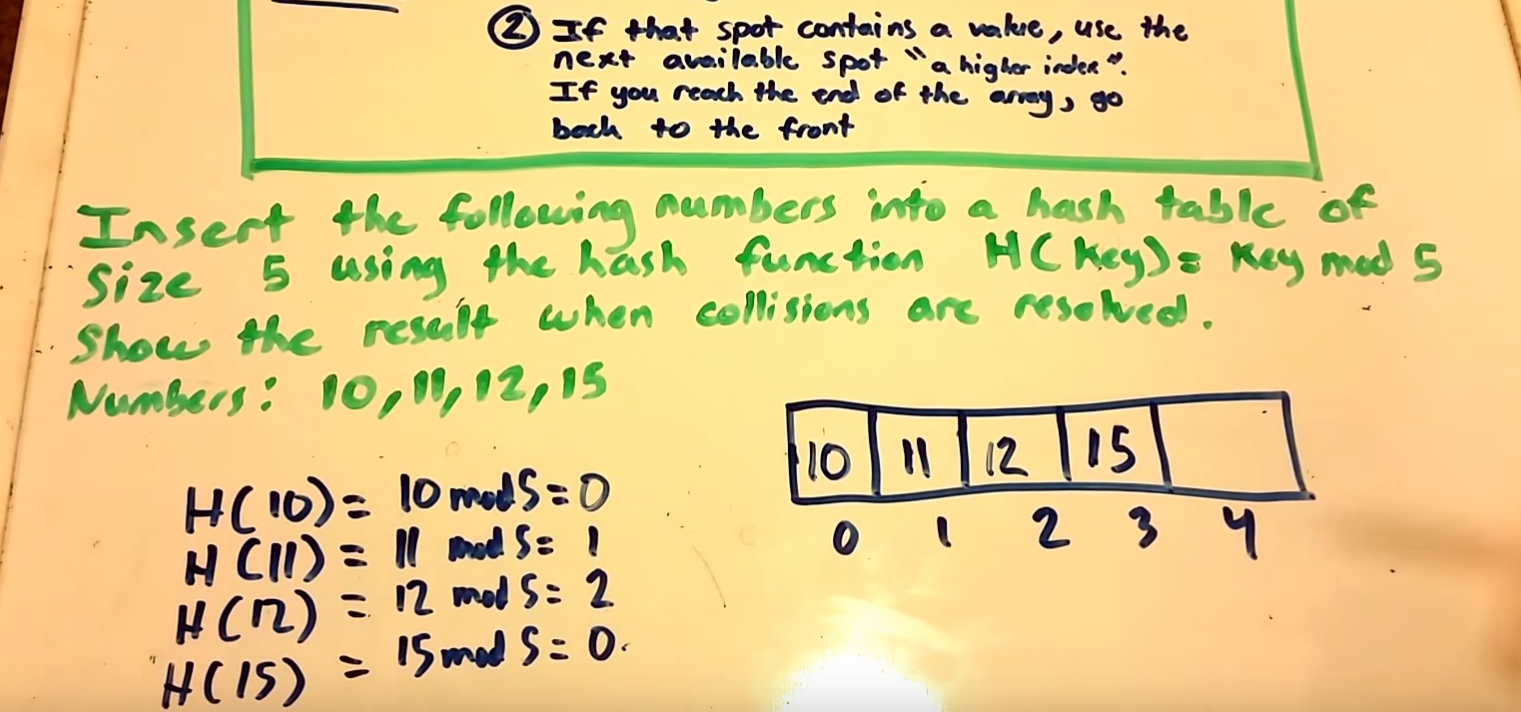 ② If that spot contains a value, use the
next available spot "a higher index".
If you reach the end of the array, go
back to the front
Insert the following numbers into a hash table of
Size 5 using the hash function H(Key)= Key mod 5
Show the result when collisions are resolved.
Numbers: 10, 11, 12, 15
10 11 12 15
0 1 2 3 4
H(10) = 10 mod 5 = 0
H(11) = 11 mod 5 = 1
H(12) = 12 mod 5 = 2
H(15) = 15 mod 5 = 0